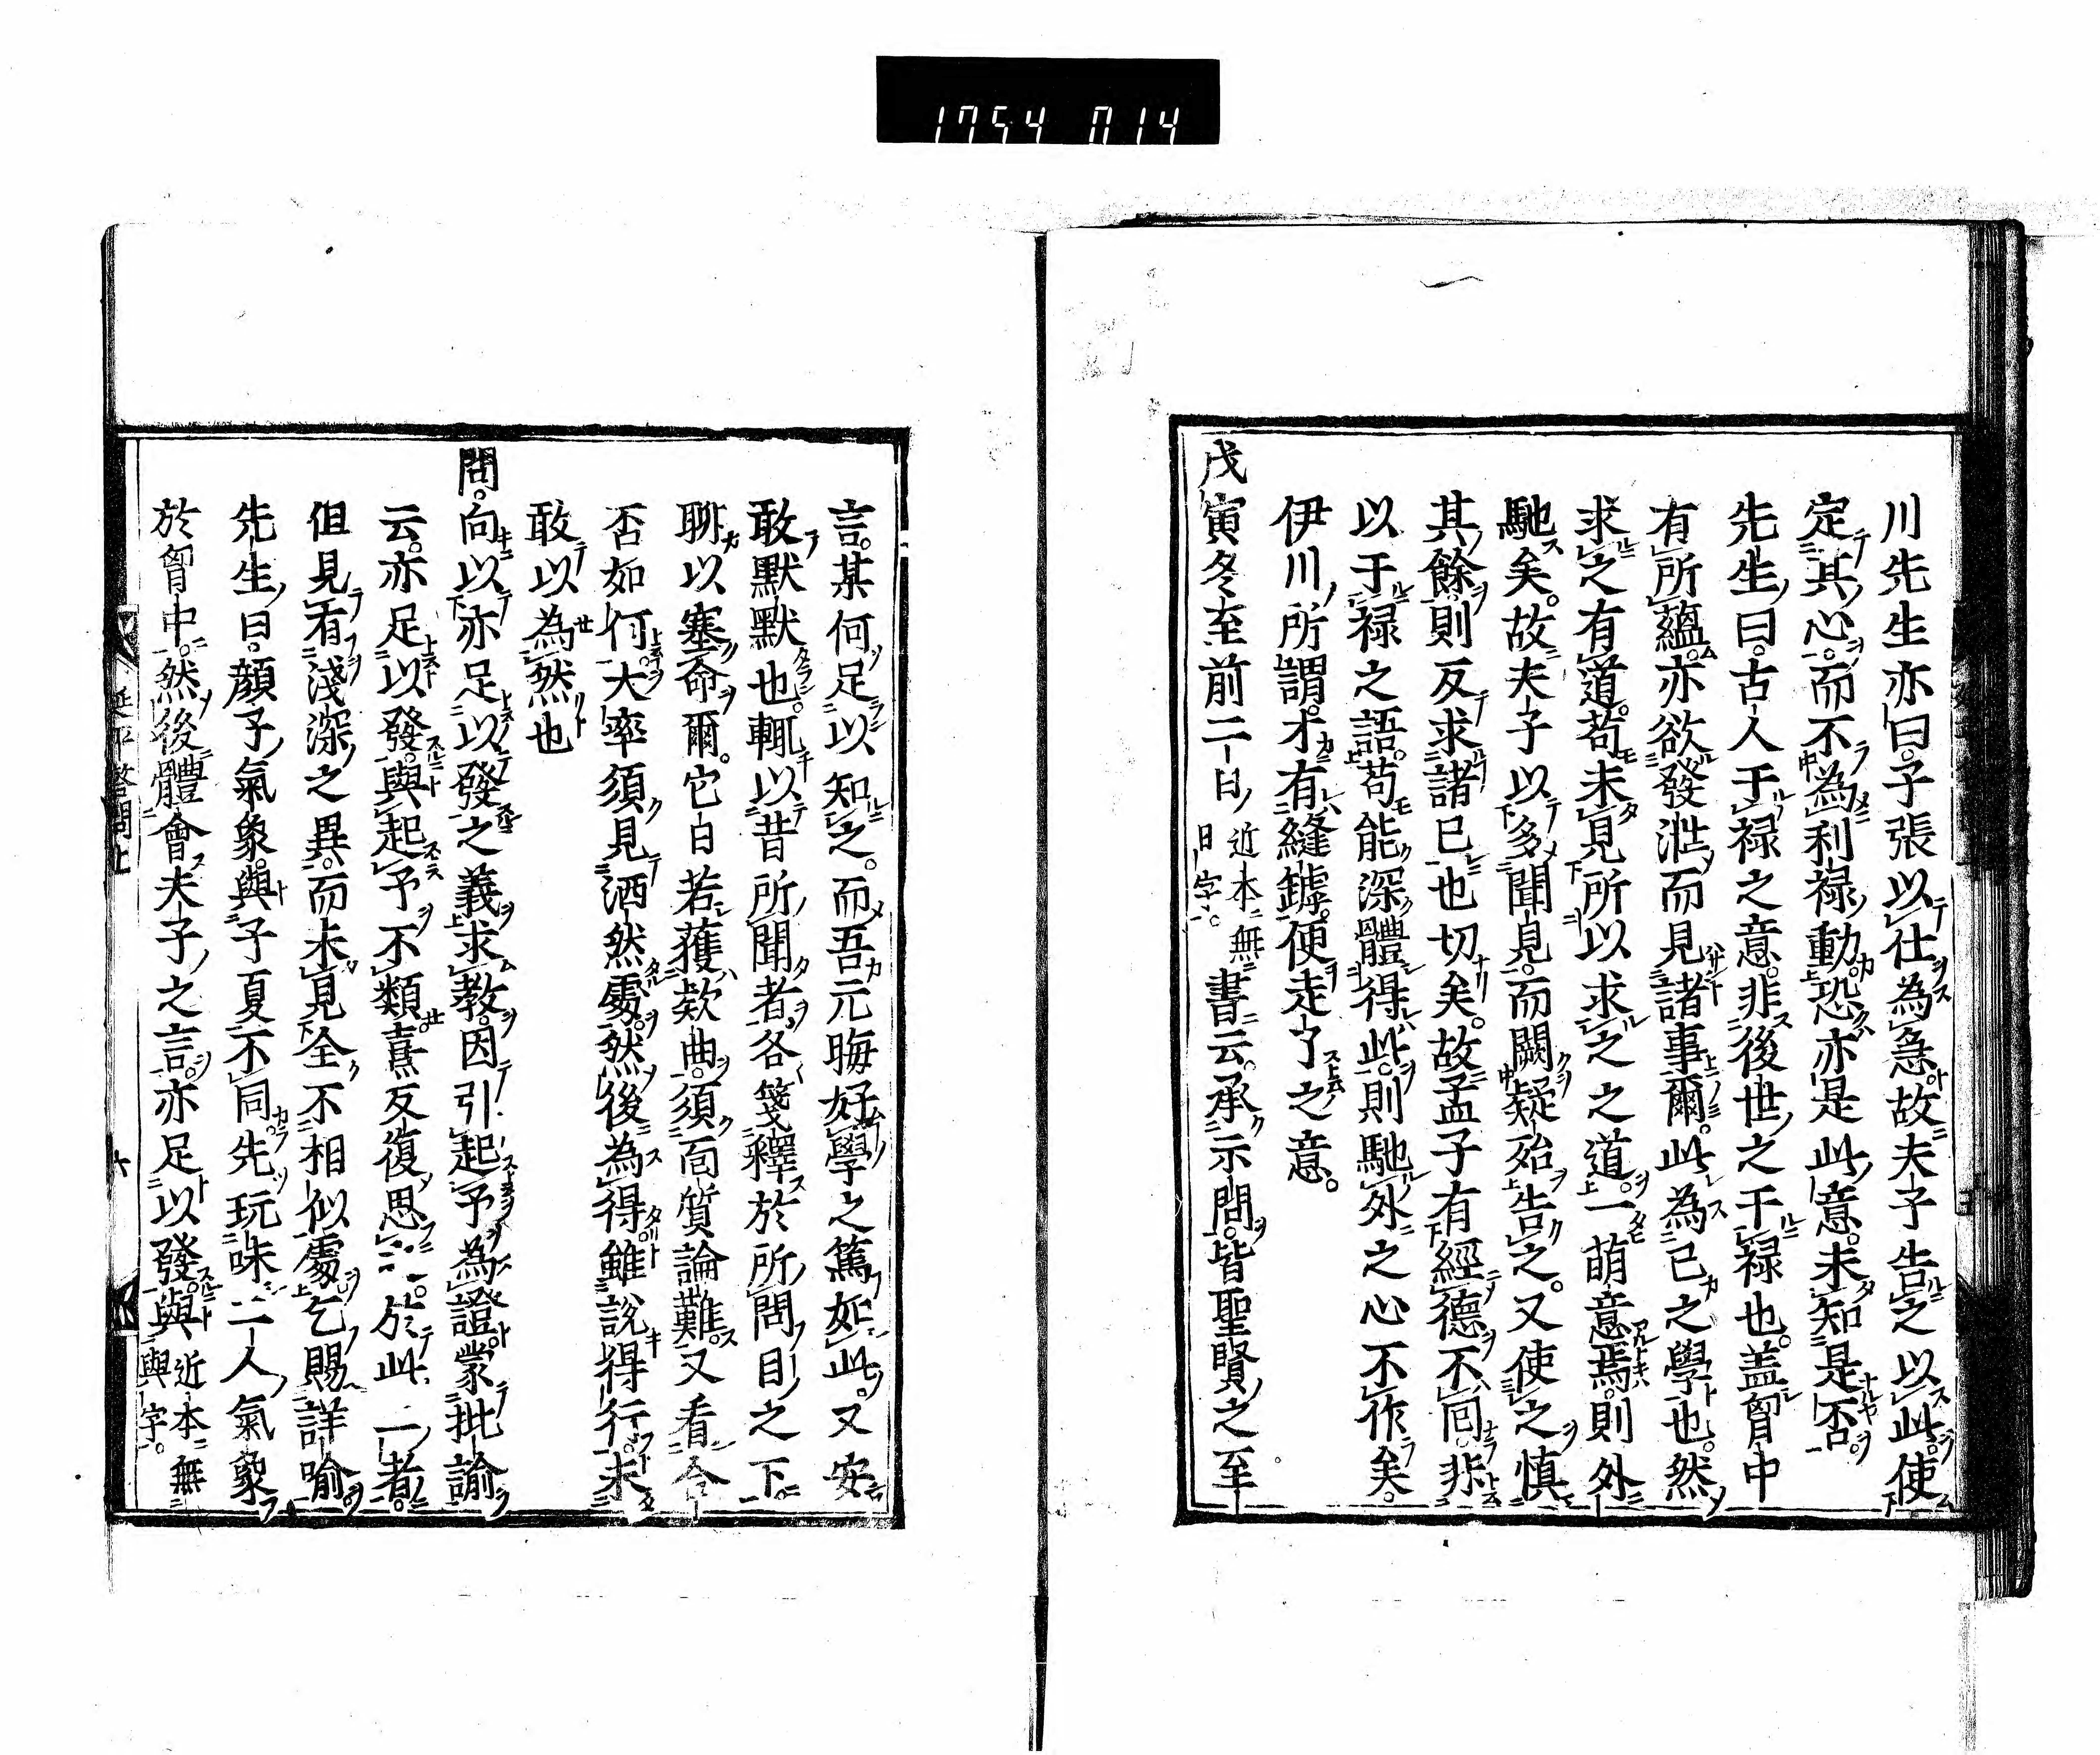 1754 014
川先生亦曰。子張以仕為急。故夫子告之以此。使
定其心。而不為利祿動。恐亦是此意。未知是否。
先生曰。古人干祿之意。非後世之干祿也。盖胷中
有所蘊。亦欲發泄而見諸事爾。此為己之學也。然
求之有道。苟未見所以求之之道。一萌意焉。則外
馳矣。故夫子以多聞見。而闕疑殆告之。又使之慎
其餘。則反求諸已也切矣。故孟子有經德不囘。非
以干祿之語。苟能深體得此。則馳外之心不作矣。
伊川所謂。才有縫罅。便走了之意。
戊寅冬至前二日近本無日字。書云。承示問。皆聖賢之至
言。某何足以知之。而吾元晦好學之篤如此。又安
敢默默也。輒以昔所聞者。各箋釋於所問目之下。
聊以塞命爾。它日若獲欵曲。須面質論難。又看合
否如何。大率須見洒然處。然後為得。雖說得行。未
敢以為然也
問。向以亦足以發之義求教。因引起予為證。蒙批諭
云。亦足以發。與起予不類。熹反復思之。於此二者。
但見有淺深之異。而未見全不相似處。乞賜詳喻。
先生曰。顏子氣象。與子夏不同。先玩味二人氣象
於胷中。然後體會夫子之言。亦足以發。與近本無與字。
延平答問上
六